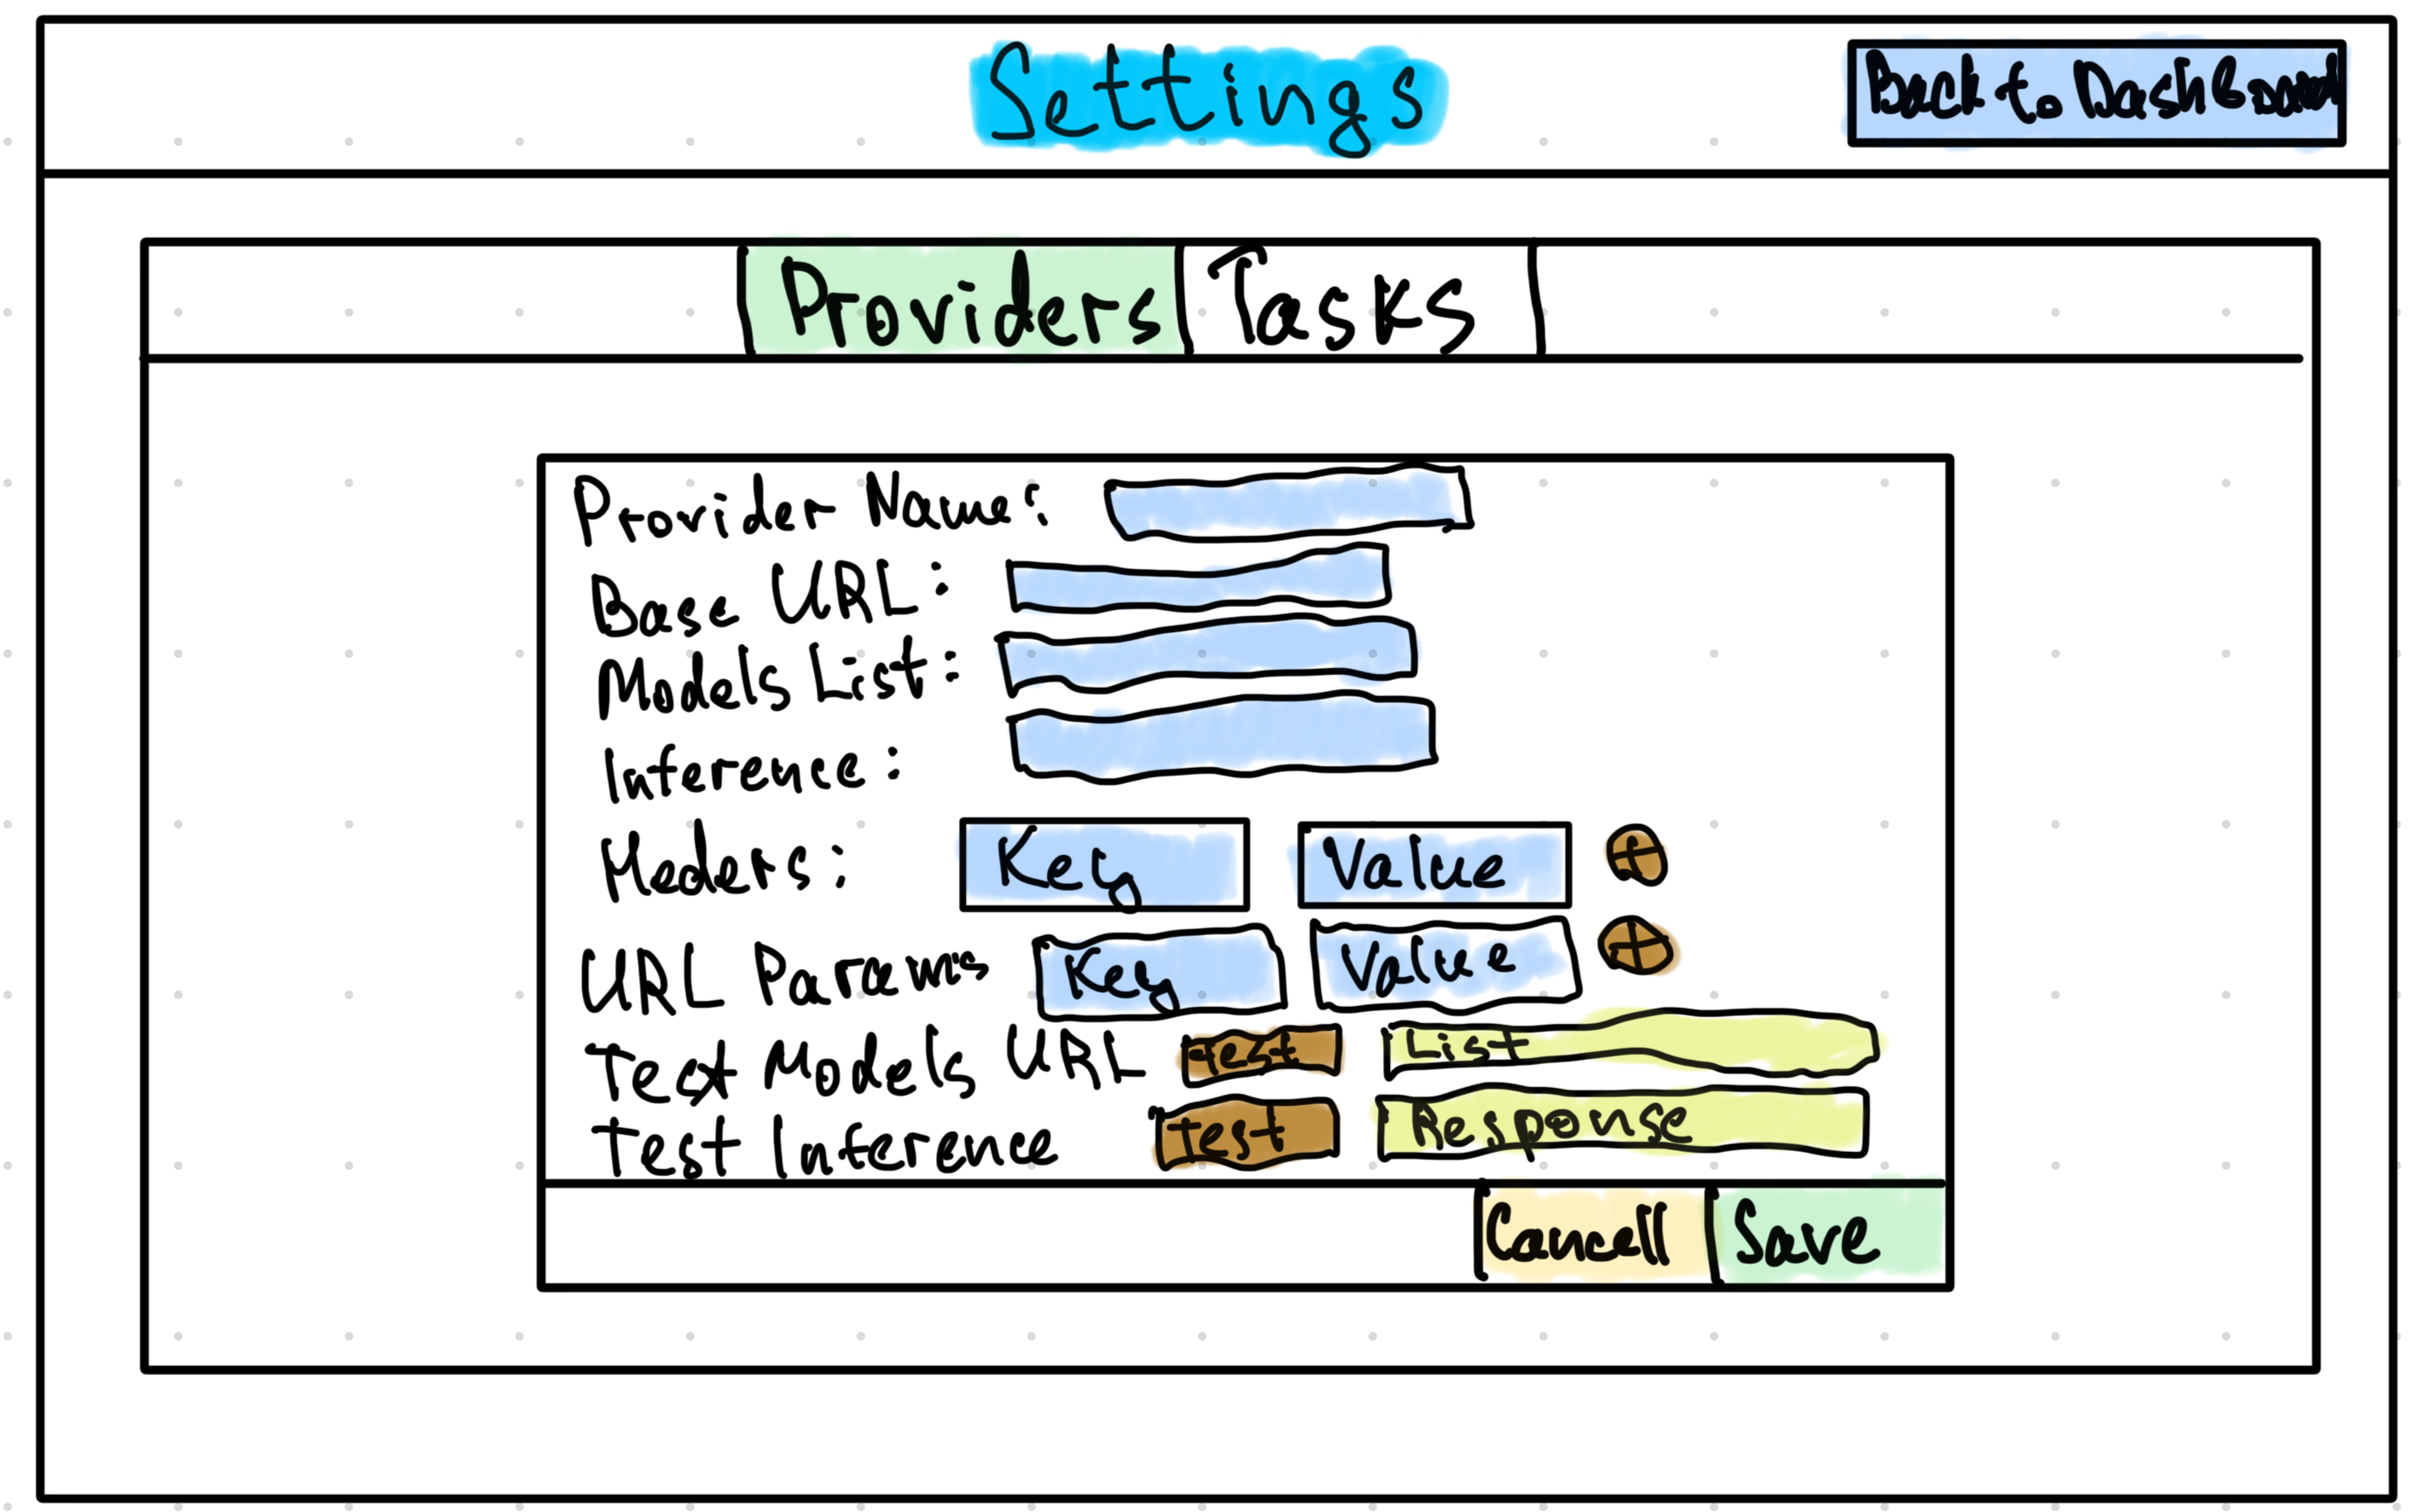 Settings
Back to DashBoard
Providers Tasks
Provider Name:
Base URL:
Models List:
Inference:
Heders: Key Value +
URL Params Key Value +
Test Models URL Test List
Test Inference Test Response
Cancell Save